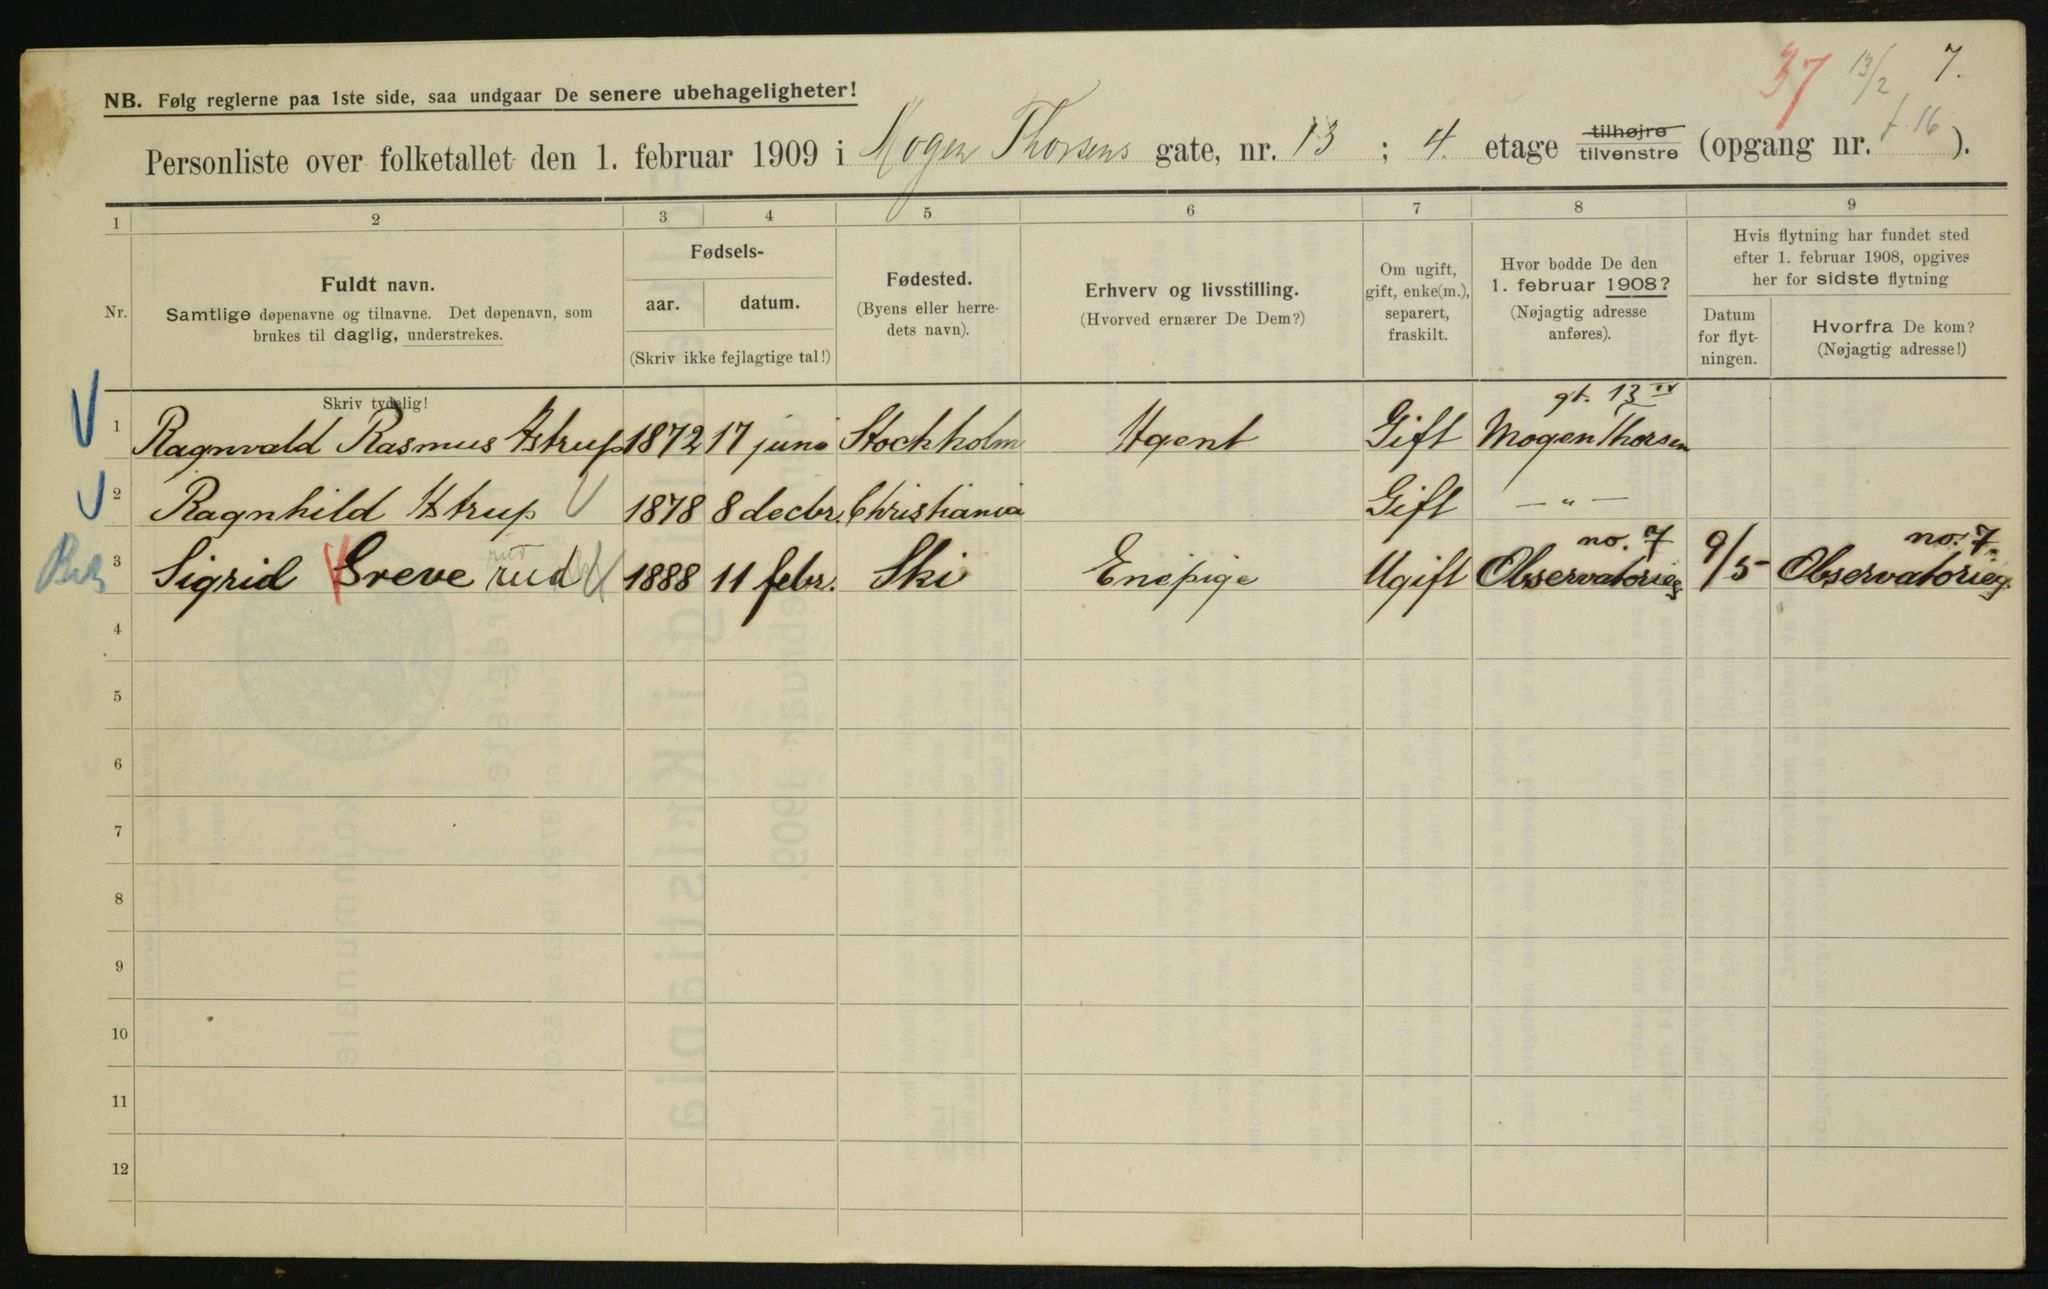 37 13/2 7.
NB. Følg reglerne paa 1ste side, saa undgaar De senere ubehageligheter!
Personliste over folketallet den 1. februar 1909 i Mogen Thorsens gate, nr. 13 ; 4. etage tilhøjre tilvenstre (opgang nr. f. 16 ).
1 2 3 4 5 6 7 8 9
Nr.
Fuldt navn.
Samtlige døpenavne og tilnavne. Det døpenavn, som
brukes til daglig, understrekes.
Skriv tydelig!
Fødsels-
aar. datum.
(Skriv ikke fejlagtige tal!)
Fødested.
(Byens eller herre-
dets navn).
Erhverv og livsstilling.
(Hvorved ernærer De Dem?)
Om ugift,
gift, enke(m.),
separert,
fraskilt.
Hvor bodde De den
1. februar 1908?
(Nøjagtig adresse
anføres).
Hvis flytning har fundet sted
efter 1. februar 1908, opgives
her for sidste flytning
Datum
for flyt-
ningen.
Hvorfra De kom?
(Nøjagtig adresse!)
gt. 13 IV
1 Ragnvald Rasmus Astrup 1872 17 juni Stockholm Agent Gift Mogen Thorsen
2 Ragnhild Astrup 1878 8 decbr. Christiania Gift — " —
no. 7 no. 7
3 Sigrid Greve rud 1888 11 febr. Ski Enepige Ugift Observatorieg 9/5 Observatorieg.
4
5
6
7
8
9
10
11
12